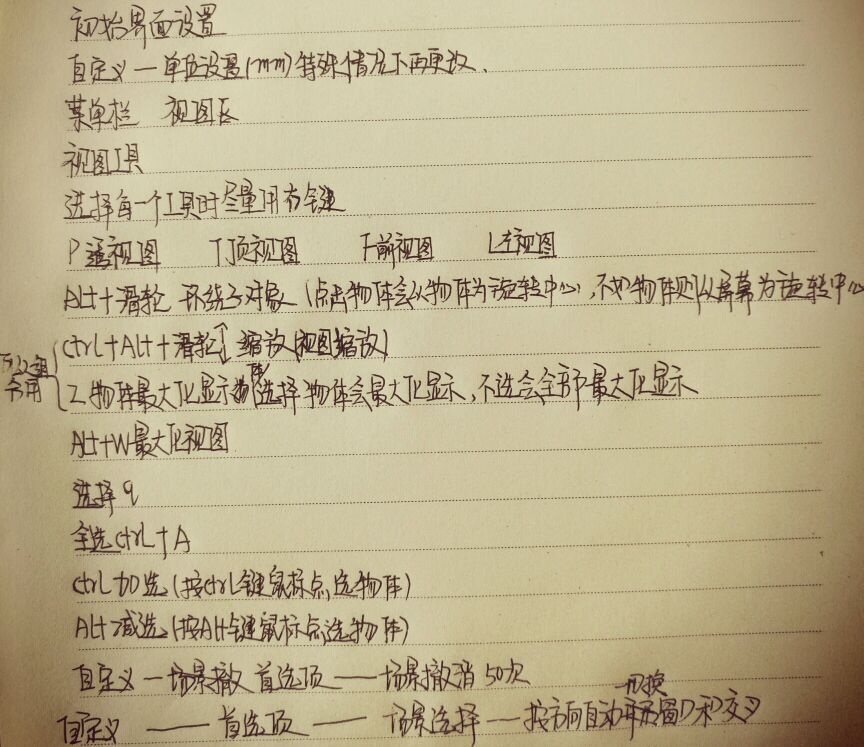 初始界面设置
自定义一单位设置(mm)特殊情况下再更改.
菜单栏 视图区
视图工具
选择每一个工具时尽量用右键
P透视图 T顶视图 F前视图 L左视图
Alt+滑轮 环绕子对象 (点击物体会以物体为旋转中心),不如物体则以屏幕为旋转中心
ctrl+Alt+滑轮 缩放(视图缩放)
可以组合用
Z物体最大化显示 选择物体会最大化显示,不选会全部最大化显示
Alt+W最大化视图
选择q
全选ctrl+A
ctrl加选(按ctrl键鼠标点选物体)
Alt减选(按Alt键鼠标点选物体)
自定义一场景撤 首选项——场景撤消50次
自定义——首选项——场景选择——按方向自动切换窗口和交叉